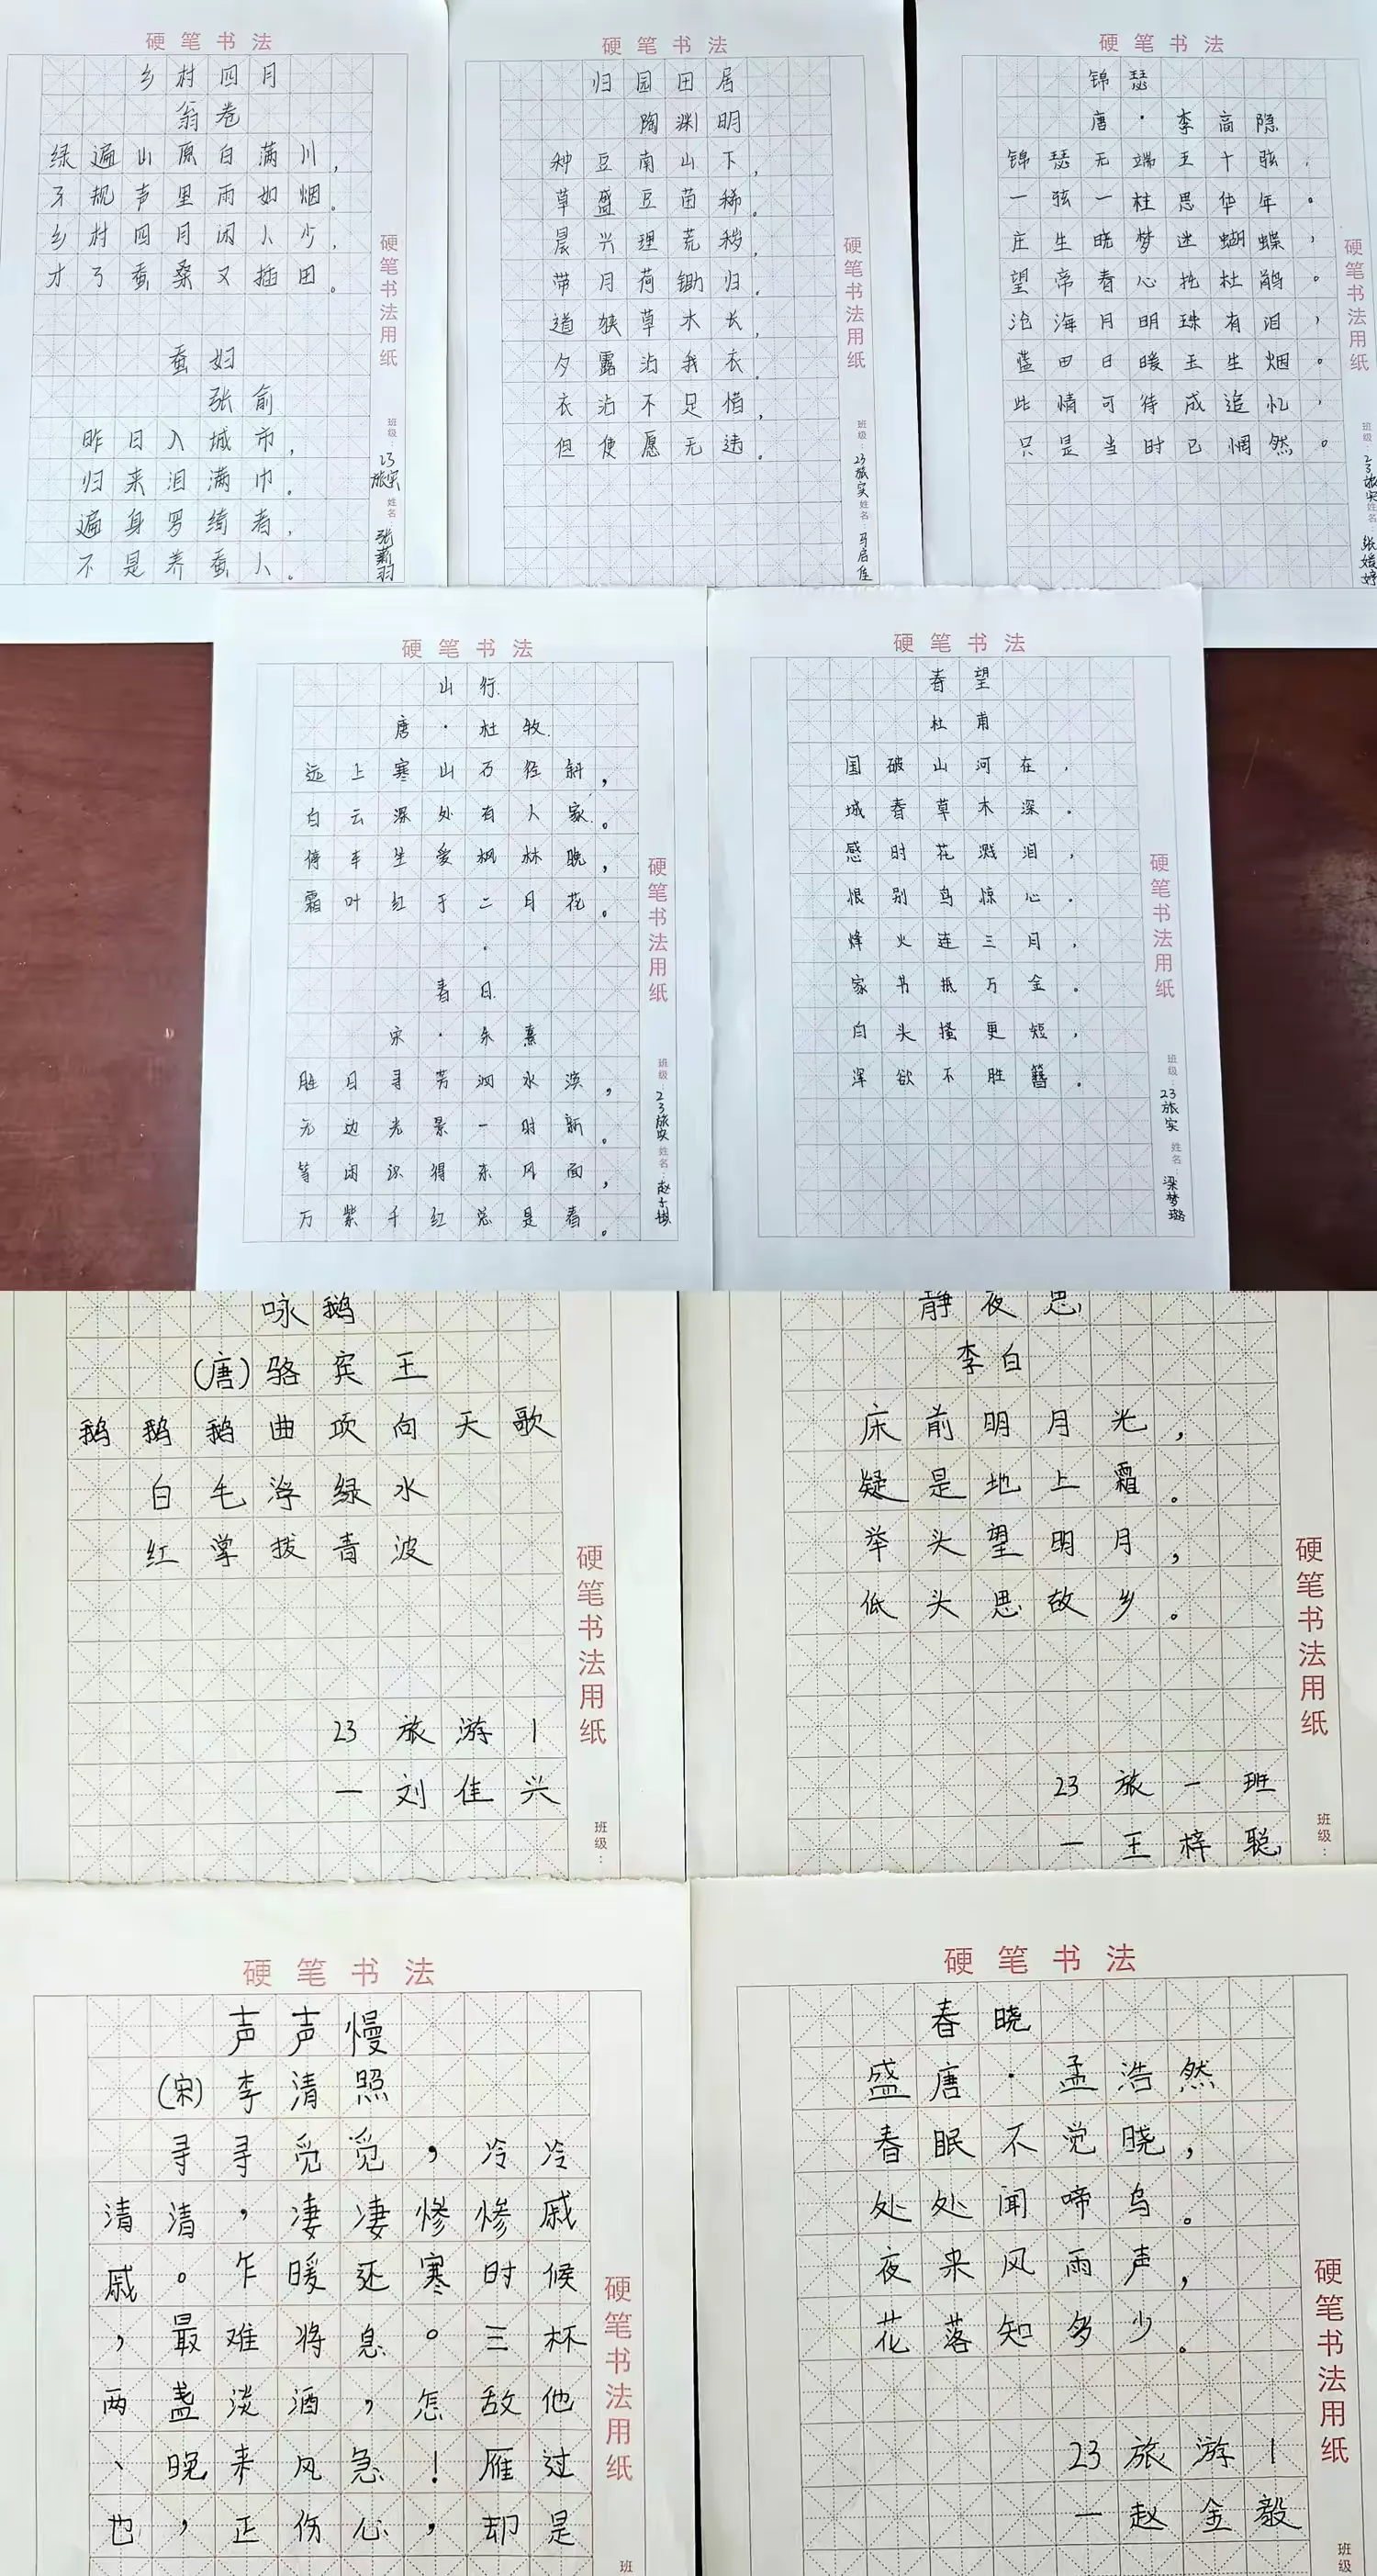 硬笔书法
乡村四月
翁卷
绿遍山原白满川，
子规声里雨如烟。
乡村四月闲人少，
才了蚕桑又插田。
蚕妇
张俞
昨日入城市，
归来泪满巾。
遍身罗绮者，
不是养蚕人。
硬笔书法用纸
班级：23旅实
姓名：张薪羽
硬笔书法
归园田居
陶渊明
种豆南山下，
草盛豆苗稀。
晨兴理荒秽，
带月荷锄归。
道狭草木长，
夕露沾我衣。
衣沾不足惜，
但使愿无违。
硬笔书法用纸
班级：23旅实
姓名：马启佳
硬笔书法
锦瑟
唐·李商隐
锦瑟无端五十弦，
一弦一柱思华年。
庄生晓梦迷蝴蝶，
望帝春心托杜鹃。
沧海月明珠有泪，
蓝田日暖玉生烟。
此情可待成追忆，
只是当时已惘然。
硬笔书法用纸
班级：23旅实
姓名：张媛婷
硬笔书法
山行
唐·杜牧
远上寒山石径斜，
白云深处有人家。
停车坐爱枫林晚，
霜叶红于二月花。
春日
宋·朱熹
胜日寻芳泗水滨，
无边光景一时新。
等闲识得东风面，
万紫千红总是春。
硬笔书法用纸
班级：23旅实
姓名：赵
硬笔书法
春望
杜甫
国破山河在，
城春草木深。
感时花溅泪，
恨别鸟惊心。
烽火连三月，
家书抵万金。
白头搔更短，
浑欲不胜簪。
硬笔书法用纸
班级：23旅实
姓名：梁梦璐
咏鹅
（唐）骆宾王
鹅鹅鹅曲项向天歌
白毛浮绿水
红掌拨青波
23旅游1
一刘佳兴
硬笔书法用纸
班级：
静夜思
李白
床前明月光，
疑是地上霜。
举头望明月，
低头思故乡。
23旅一班
一王梓聪
硬笔书法用纸
班级：
硬笔书法
声声慢
（宋）李清照
寻寻觅觅，冷冷
清清，凄凄惨惨戚
戚。乍暖还寒时候
，最难将息。三杯
两盏淡酒，怎敌他
、晚来风急！雁过
也，正伤心，却是
硬笔书法用纸
班
硬笔书法
春晓
盛唐·孟浩然
春眠不觉晓，
处处闻啼鸟。
夜来风雨声，
花落知多少。
23旅游1
一赵金毅
硬笔书法用纸
班级